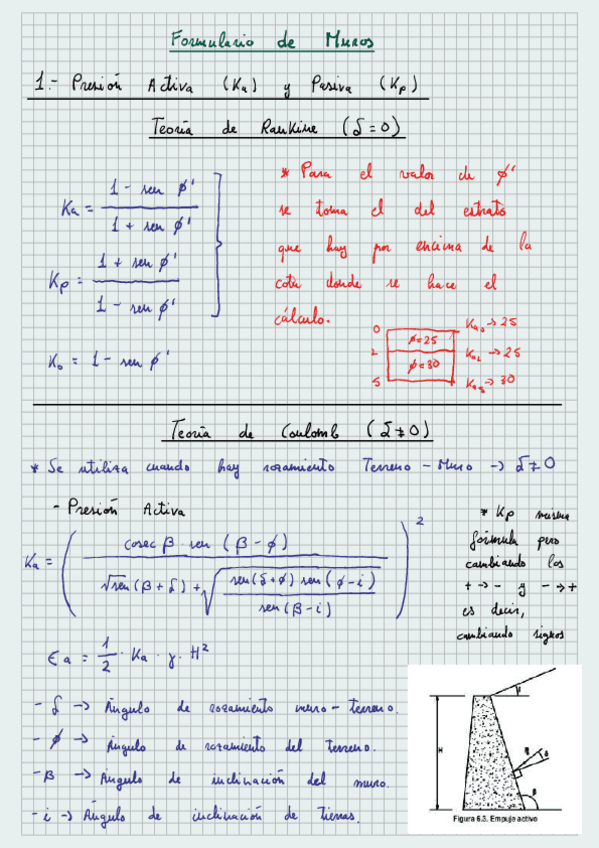 Formulario de Muros
1.- Presión Activa (Ka) y Pasiva (Kp)
Teoría de Rankine (δ=0)
Ka = (1 - sen φ') / (1 + sen φ')
Kp = (1 + sen φ') / (1 - sen φ')
K₀ = 1 - sen φ'
* Para el valor de φ'
se toma el del estrato
que hay por encima de la
cota donde se hace el
cálculo.
0 φ=25 Ka₀ → 25
2 φ=30 Ka₂ → 25
5 Ka₅ → 30
Teoría de Coulomb (δ≠0)
* Se utiliza cuando hay rozamiento Terreno - Muro → δ≠0
- Presión Activa
Ka = ( cosec β · sen (β - φ) / ( √sen(β + δ) + √( sen(δ+φ) sen(φ-i) / sen(β-i) ) ) )²
* Kp misma
fórmula pero
cambiando los
+ → - y - → +
es decir,
cambiando signos
Ea = 1/2 · Ka · γ · H²
- δ → Ángulo de rozamiento muro - terreno.
- φ → Ángulo de rozamiento del terreno.
- β → Ángulo de inclinación del muro.
- i → Ángulo de inclinación de tierras.
H
i
δ
β
Figura 6.3. Empuje activo